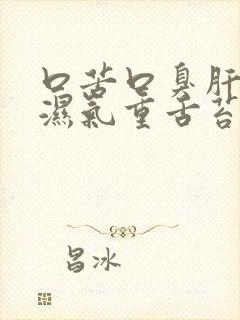 口苦口臭肝
濕氣重舌苔
昌冰